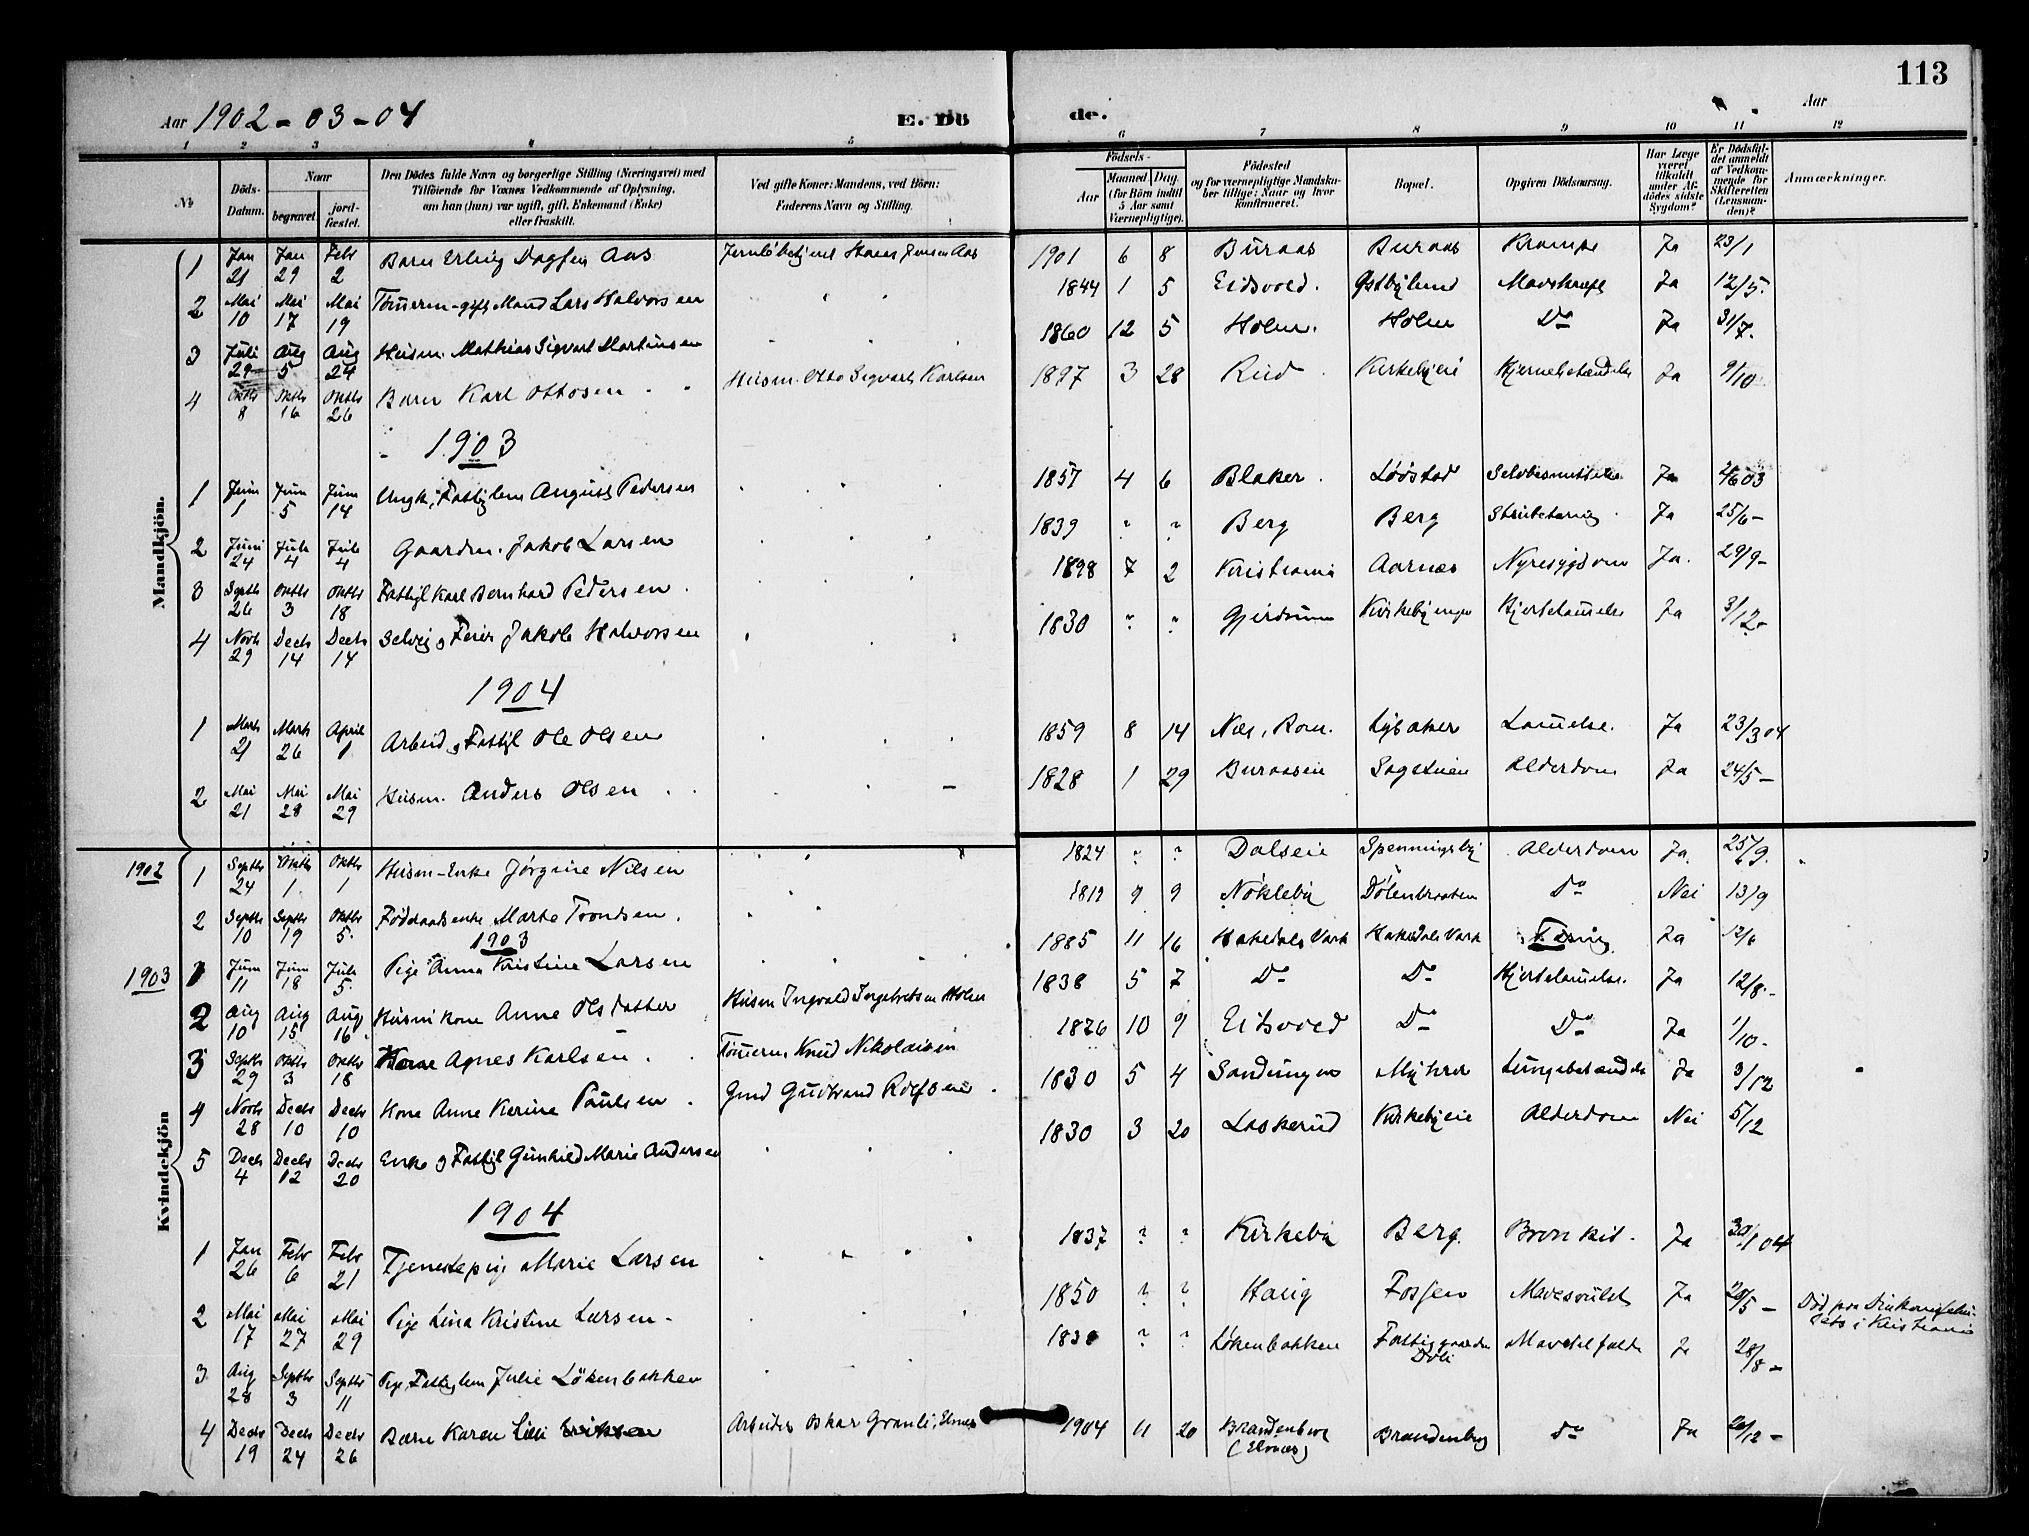 113
Aar 1902 - 03 - 04
E. Dö
de.
Aar
1 2 3 4 5 6 7 8 9 10 11 12
No
Döds-Datum.
Naar
begravet.
jordfæstet.
Den Dödes fulde Navn og borgerlige Stilling (Næringsvei) med
Tilföiende for Voxnes Vedkommende af Oplysning,
om han (hun) var ugift, gift, Enkemand (Enke)
eller fraskilt.
Ved gifte Koner: Mandens, ved Börn:
Faderens Navn og Stilling.
Födsels-
Aar
Maaned Dag
(for Börn indtil
5 Aar samt
Værnepligtige).
Födested
og for værnepligtige Mandskaber tillige: Naar og hvor
konfirmeret.
Bopæl.
Opgiven Dödsaarsag.
Har Læge
været
tilkaldt
under Afdödes sidste
Sygdom?
Er Dödsfaldet anmeldt
af Vedkommende for
Skifteretten
(Lensmanden)?
Anmærkninger.
Mandkjön.
1 Jan 21 Jan 29 Feb 2 Barn Erling Dagfin Aas Hans Jensen Aas 1901 6 8 Buraas Buraas Krampe Ja 23/1
2 Mai 10 Mai 17 Mai 19 Tömerm. gift Mand Lars Halvorsen 1844 1 5 Eidsvold. Østbylund Mavekræft Ja 12/5.
3 Juli 29 Aug 5 Aug 24 Husm. Mathias Sigvart Martinsen 1860 12 5 Holm. Holm Do Ja 31/7.
4 Oktb 8 Oktb 16 Oktb 26 Barn Karl Ottosen Husm. Otto Sigvart Karlsen 1897 3 28 Rud Kirkebyeie Hjernebetændelse Ja 9/10
1903
1 Juni 1 Juni 5 Juni 14 Ungk. Fattiglem August Pedersen 1857 4 6 Blaker. Lööstad Ja 2/6 03
2 Juni 24 Juli 4 Juli 4 Gaardm. Jakob Larsen 1839 " " Berg Berg Strubetæring Ja 25/6 -
3 Septb 26 Oktb 3 Oktb 18 Fattigl Karl Bernhard Pedersen 1898 7 2 Kristiania Aarnæs Nyresygdom Ja. 29/9 -
4 Novb 29 Decb 14 Decb 14 Selveig. Jakob Halvorsen 1830 " " Gjerdrum Kirkebyenge Hjertelamelse Ja 3/12 -
1904
1 Marts 21 Marts 26 April 1 Arbeid. & Fattigl Ole Olsen 1859 8 14 Næs, Rom. Lybaker Lamelse. Ja 23/3 04
2 Mai 21 Mai 28 Mai 29 Husm. Anders Olsen 1828 1 29 Buraaseie Sagstuen Alderdom Ja 24/5 -
Kvindekjön
1902
1 Septb 24 Oktb 1 Oktb 1 Husm-Enke Jörgine Nilsen 1824 " " Dalseie Spenningsby Alderdom Ja. 25/9.
2 Septb 10 Septb 19 Oktb 5. Föderaadsenke Marte Trondsen. 1819 9 9 Nökleby Dölenbraaten Do Nei 13/9
1903
1903
1 Juni 11 Juni 18 Juli 5. Pige Anna Kristine Larsen 1885 11 16 Hakedals Værk Hakedals Værk Tæring Ja 12/6
2 Aug 10 Aug 15 Aug 16. Husm. kone Anne Olsdatter Husm Ingvald Ingebretsen Holm 1838 5 7 Do Do Hjertelamelse. Ja 12/8 -
3 Septb 29 Oktb 3 Oktb 18 Kone Agnes Karlsen Tömerm. Knud Nikolaisen 1826 10 9 Eidsvold Do Do Ja 1/10 -
4 Novb 28 Decb 10 Decb 10 Kone Anne Karine Paulsen Gmd Gudbrand Rolfsen 1830 5 4 Sandungen Myhrer Lungebetændelse Ja 3/12
5 Decb 4 Decb 12 Decb 20 Enke & Fattigl Gunhild Marie Andersen 1830 3 20 Laskerud Kirkebyeie Alderdom Nei 5/12
1904
1 Jan 26 Feb 6 Feb 21 Tjenestepig Marie Larsen 1837 ? ? Kirkeby Berg. Bronkit. Ja 30/1 04
2 Mai 17 Mai 27 Mai 29 Pige Lina Kristine Larsen - 1850 ? ? Haug Fossen Mavesvulst Ja 20/5 - Död paa Diakonissehuset i Kristiania
3 Aug 28 Septb 3 Septb 11 Pige, Fattiglem Julie Lökenbakken 1838 ? ? Lökenbakken Fattiggaarden Döli Mavetilfælde Ja 28/8 -
4 Decb 19 Decb 24 Decb 26 Barn Karen Lilli Eriksen Arbeider Oskar Granli, Elvnæs 1904 11 20 Brandenborg (Elvnæs) Brandenborg Do Ja 20/12 -